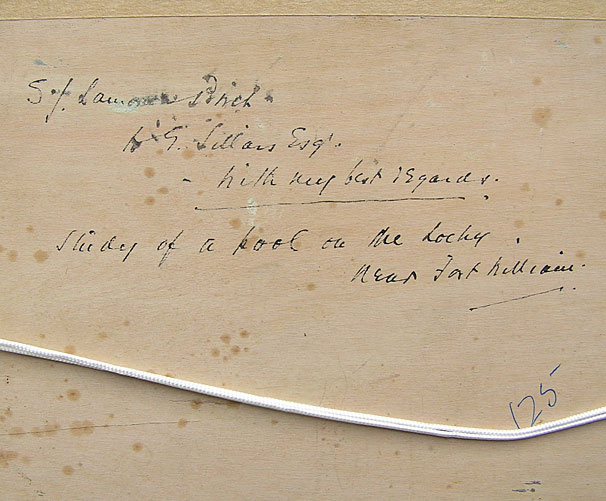 S. J. Lamorna Birch
to G. Sillars Esqr.
- With very best regards.
Study of a pool on the Lochy.
Near Fort William.
125